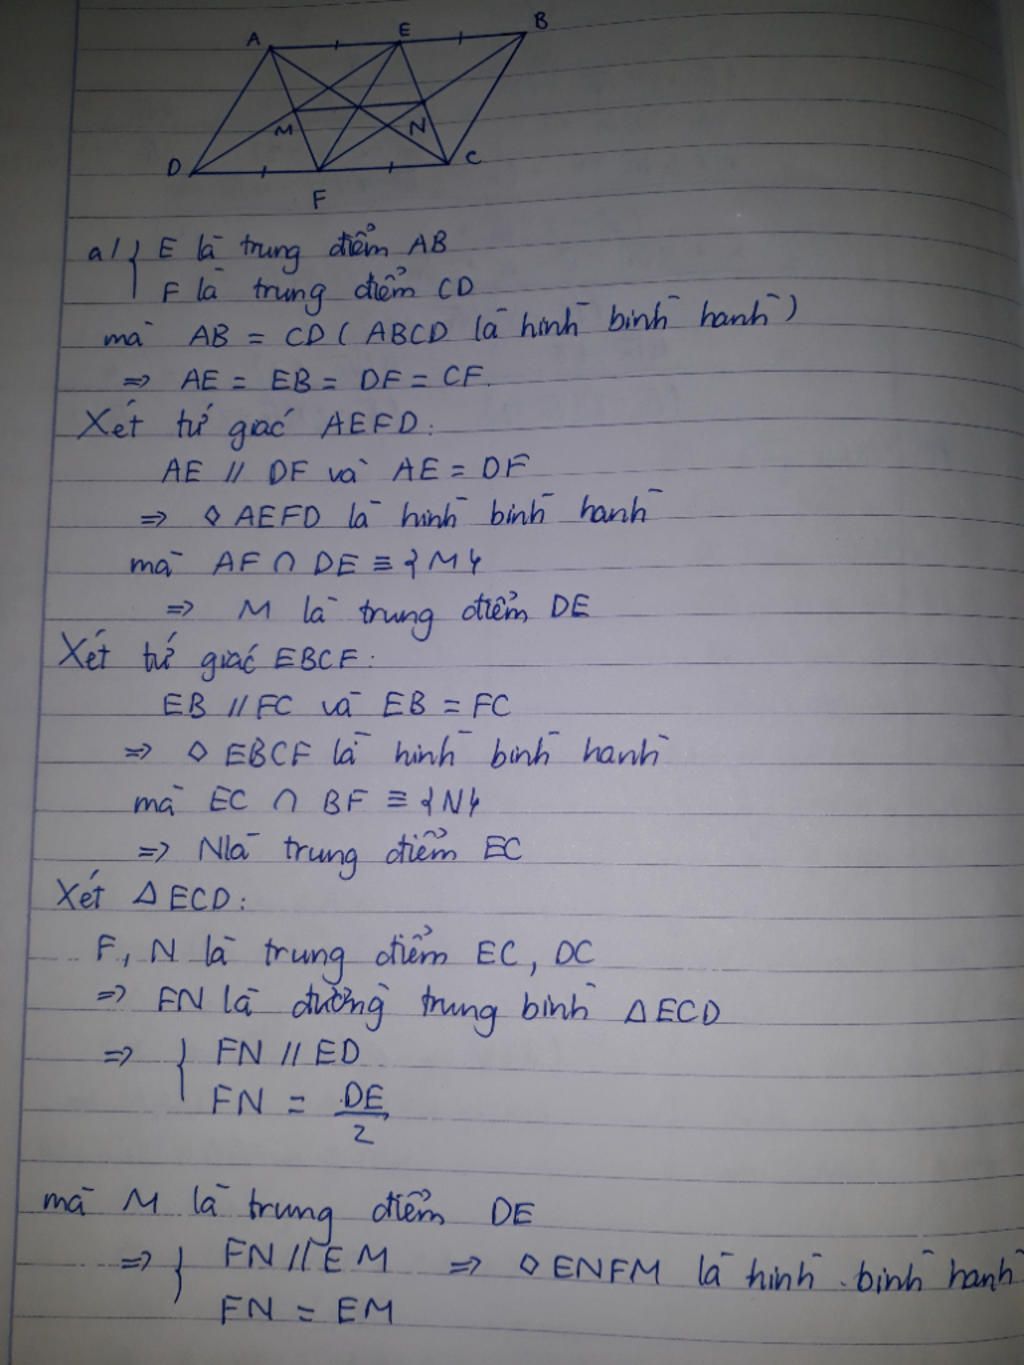 A E B
M N
D C
F
a/ { E là trung điểm AB
F là trung điểm CD
mà AB = CD ( ABCD là hình bình hành )
=> AE = EB = DF = CF.
Xét tứ giác AEFD:
AE // DF và AE = DF
=> ◊ AEFD là hình bình hành
mà AF ∩ DE ≡ {M}
=> M là trung điểm DE
Xét tứ giác EBCF:
EB // FC và EB = FC
=> ◊ EBCF là hình bình hành
mà EC ∩ BF ≡ {N}
=> N là trung điểm EC
Xét Δ ECD:
F, N là trung điểm EC, DC
=> FN là đường trung bình Δ ECD
=> { FN // ED
FN = DE/2
mà M là trung điểm DE
=> { FN // EM => ◊ ENFM là hình bình hành
FN = EM